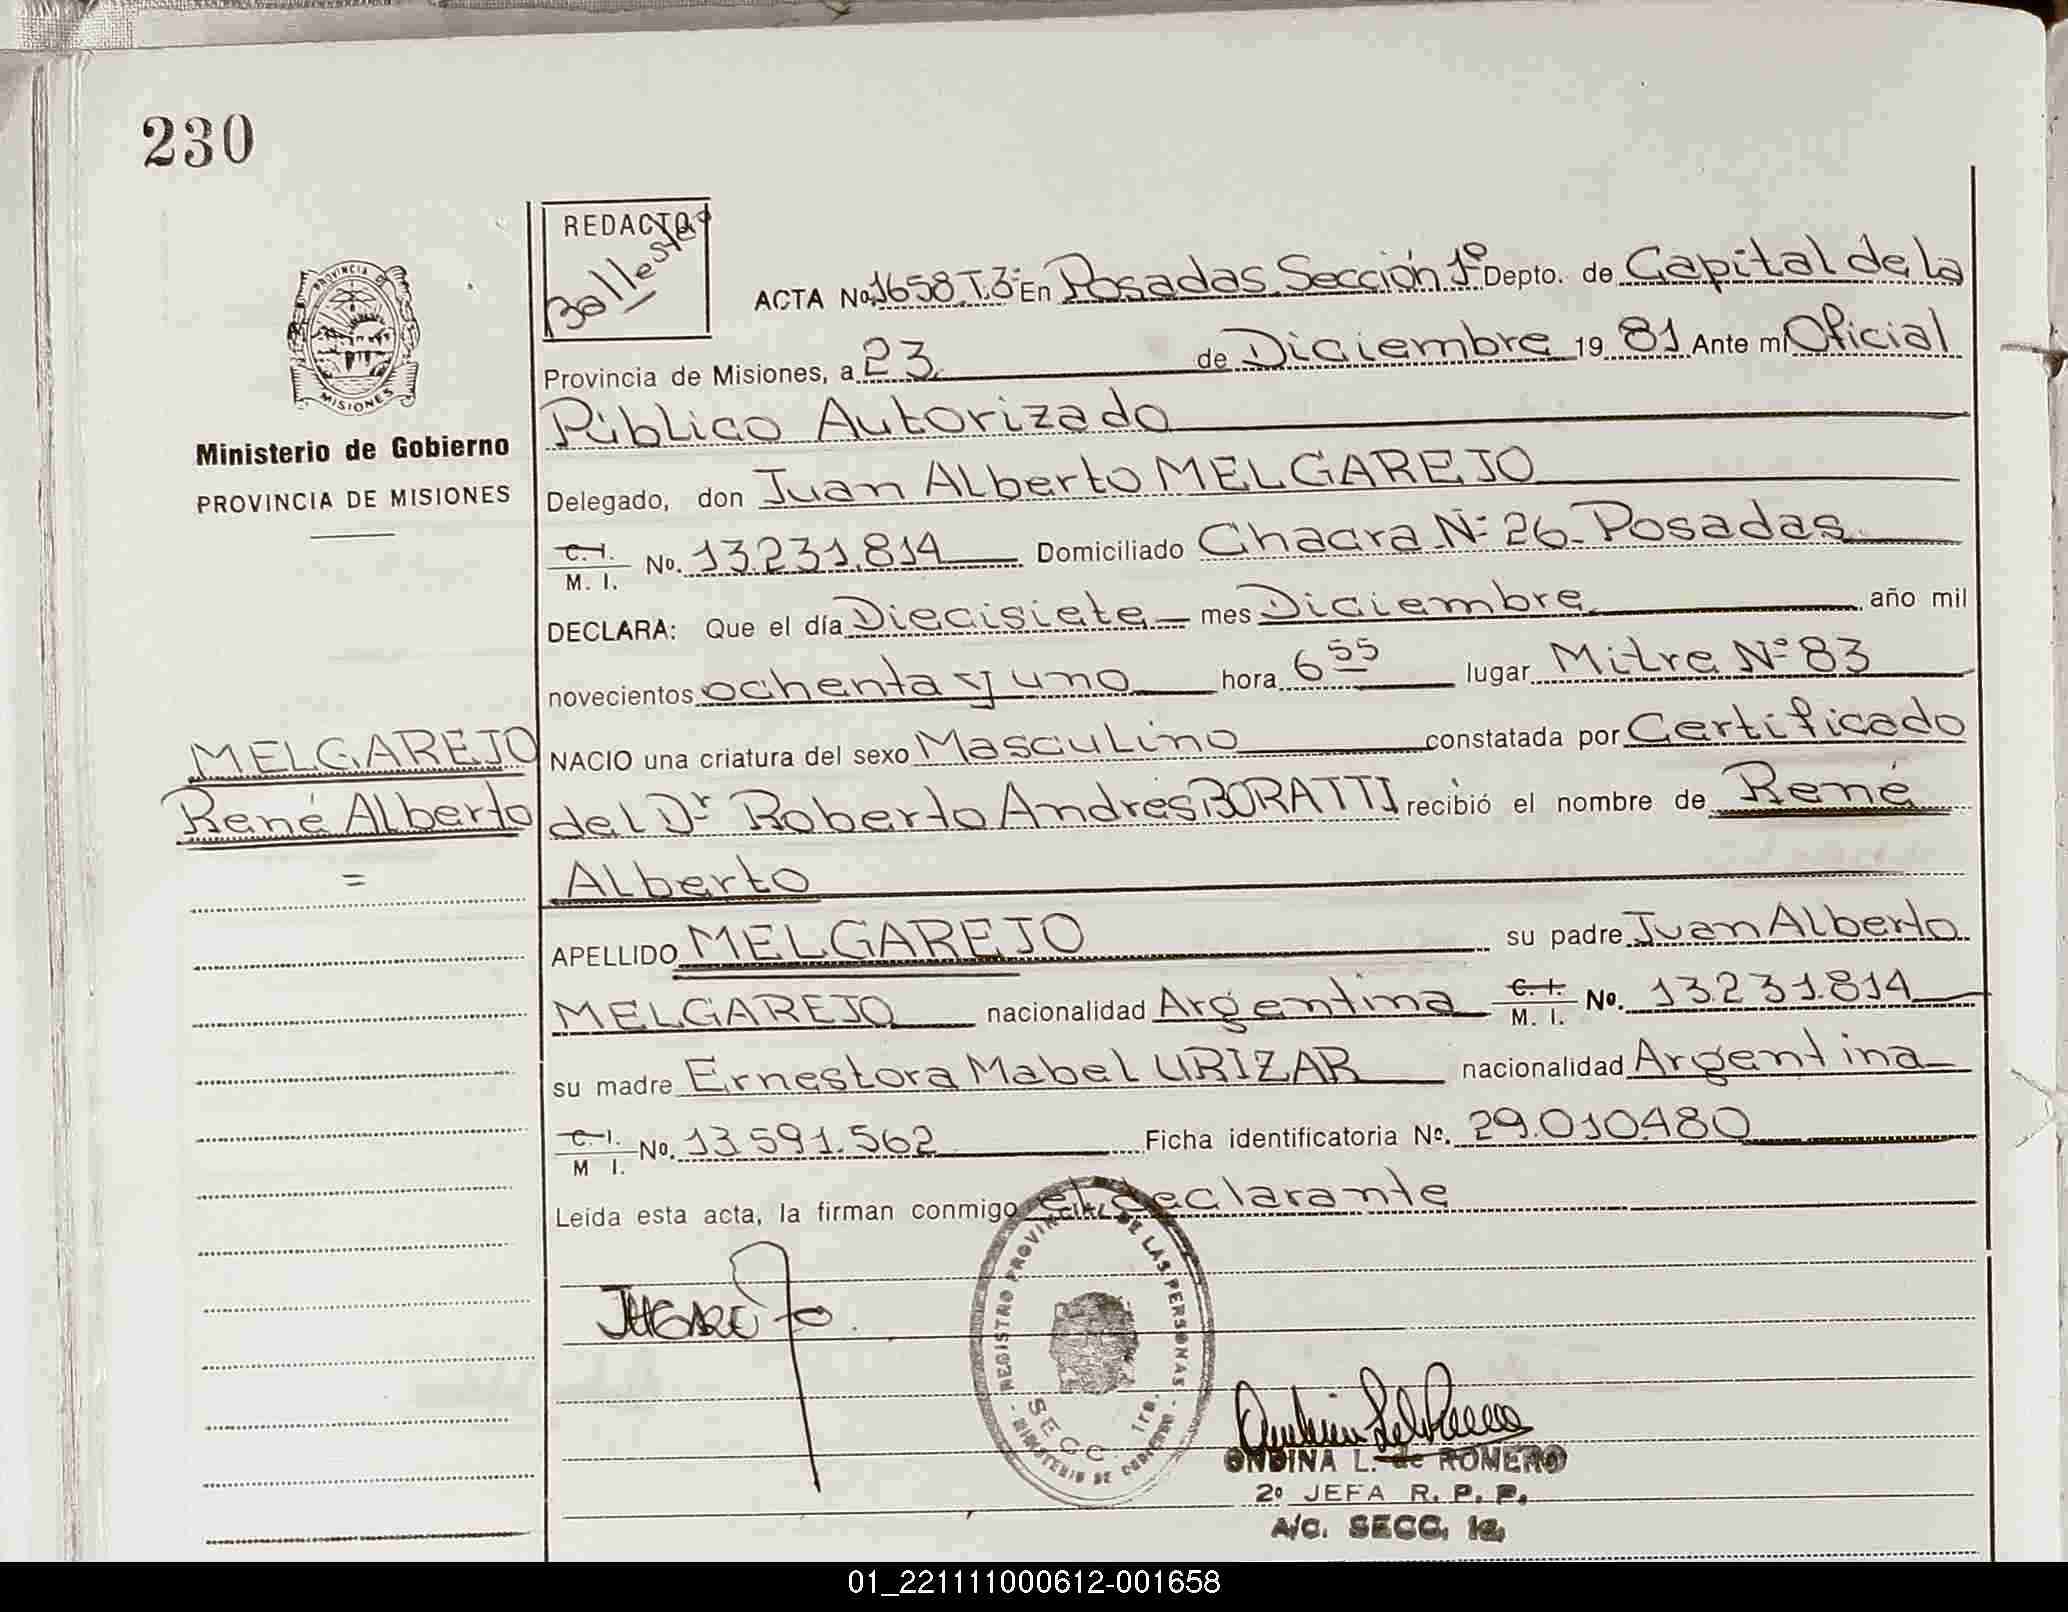 230
REDACTO
Ballester
PROVINCIA DE
MISIONES
Ministerio de Gobierno
PROVINCIA DE MISIONES
ACTA No. 1658 T.3º En Posadas Sección 1º Depto. de Capital de la
Provincia de Misiones, a 23 de Diciembre 19 81 Ante mi Oficial
Público Autorizado
Delegado, don Juan Alberto MELGAREJO
C. I.
M. I. No. 13.231.814 Domiciliado Chacra Nº 26 - Posadas
DECLARA: Que el día Diecisiete mes Diciembre año mil
novecientos ochenta y uno hora 6 55 lugar Mitre Nº 83
MELGAREJO
René Alberto
=
NACIO una criatura del sexo Masculino constatada por Certificado
del Dr Roberto Andrés BORATTI recibió el nombre de René
Alberto
APELLIDO MELGAREJO su padre Juan Alberto
MELGAREJO nacionalidad Argentina C. I. M. I. No. 13.231.814
su madre Ernestora Mabel URIZAR nacionalidad Argentina
C. I.
M I. No. 13.591.562 Ficha identificatoria No. 29.010.480
Leída esta acta, la firman conmigo el declarante
REGISTRO PROVINCIAL DE LAS PERSONAS
SECC. 1ra.
MINISTERIO DE GOBIERNO
ONDINA L. de ROMERO
2º JEFA R. P. P.
A/C. SECC. 1a.
01_221111000612-001658